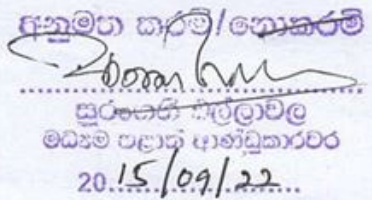 අනුමත කරමි/නොකරමි
සුරංගනී එල්ලාවල
මධ්‍යම පළාත් ආණ්ඩුකාරවර
2015/09/22